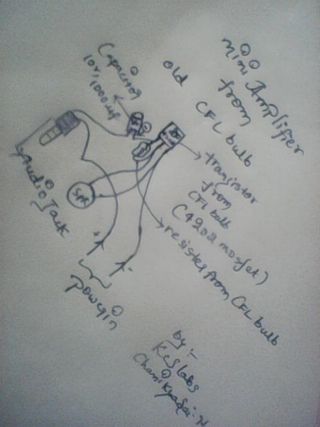 mini Amplifier
from
old CFL bulb
Capacitor
10v, 1000uf
transistor
from
CFL bulb
(4202 mosfet)
Audio Jack
SPK
resister from CFL bulb
power in
+
-
by :-